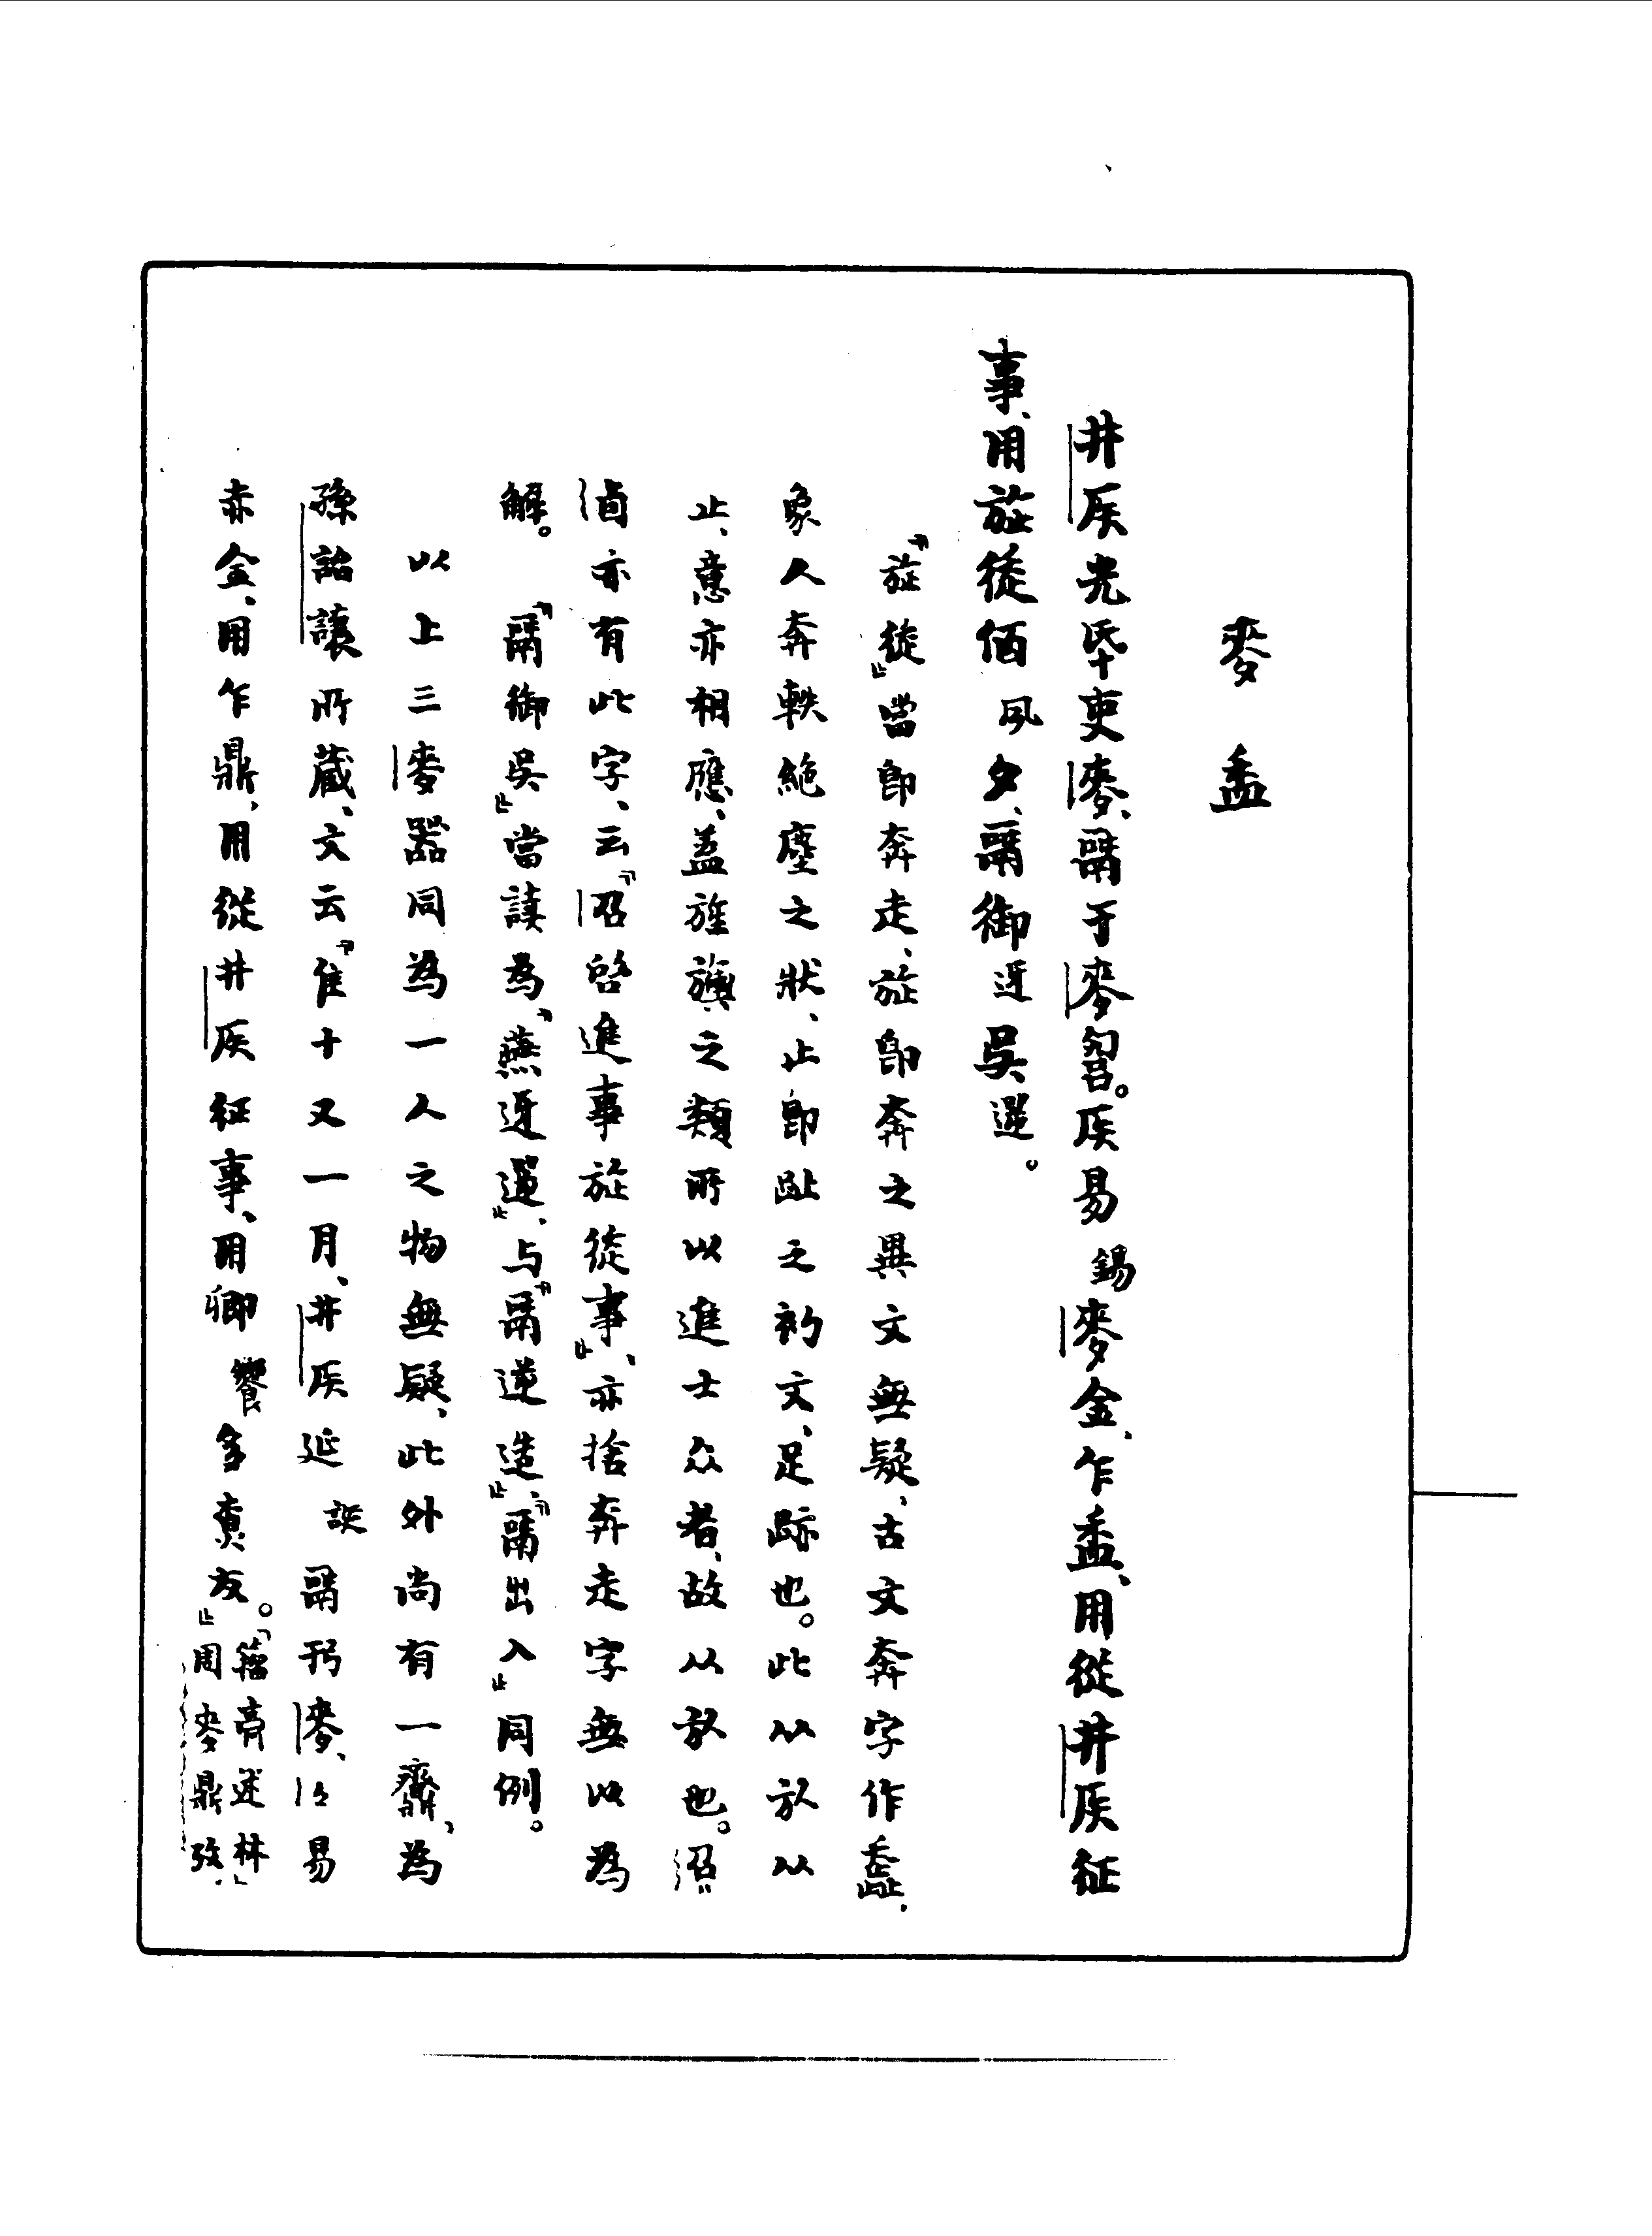 麥盉
井侯光氒吏麥、𩰫于麥𡧛。侯易錫麥金、乍盉、用從井侯征
事、用旋徒㑉夙夕、𩰫御迓吳選。
「旋徒」當即奔走、旋即奔之異文無疑、古文奔字作𡘲、
象人奔軼絕塵之狀、止即趾之初文、足跡也。此从㫃从
止、意亦相應、蓋旌旗之類所以進士众者、故从㫃也。𥃝
卣亦有此字、云「𥃝啓進事旋徒事」、亦捨奔走字無以為
解。「𩰫御吳」當讀為「燕迓選」、与「𩰫逆造」、「𩰫出入」同例。
以上三麥器同為一人之物無疑、此外尚有一齋、為
孫詒讓所藏、文云「隹十又一月、井侯延誕𩰫于麥、易
赤金、用乍鼎、用從井侯征事、用卿饗多賓友。」「籀䯧述林」
周麥鼎攷、